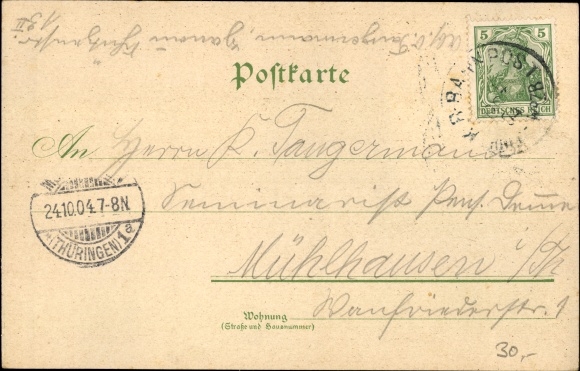 Postkarte
5 5
DEUTSCHES REICH
BAHNPOST
An Herrn K. Tangermann
Seminarist Pens. Demme
24.10.04.7-8N
(THÜRINGEN) 1a
Mühlhausen i/Th
Wanfriederstr. 1
Wohnung
(Straße und Hausnummer)
30,-